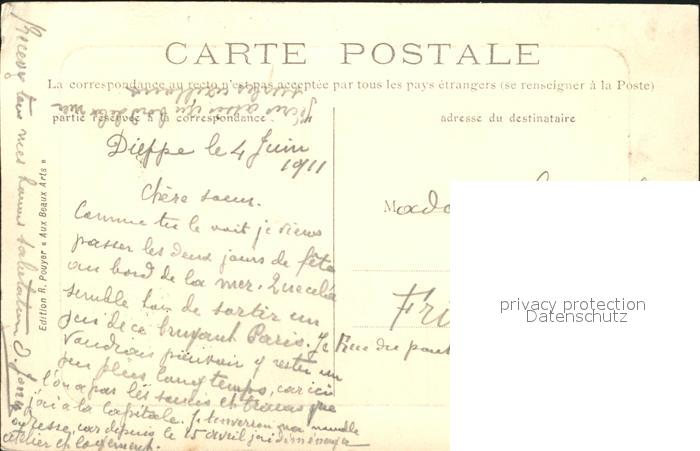 CARTE POSTALE
La correspondance au recto n'est pas acceptée par tous les pays étrangers (se renseigner à la Poste)
partie réservée à la correspondance.
adresse du destinataire
Dieppe le 4 Juin
1911
Chère soeur.
Comme tu le voit je viens
passer les deux jours de fête
au bord de la mer. Que cela
semble bon de sortir un
peu de ce bruyant Paris. Je
voudrais pouvoir y rester un
peu plus longtemps, car ici
l'on a pas les soucis et tracas que
j'ai à la capitale. Je t'enverrai ma nouvelle
adresse, car depuis le 15 avril j'ai déménagé
atelier et logement.
Recevez tous mes bonnes salutations
Edition R. Pouyer « Aux Beaux Arts »
Mada
Fri
Rue du pont
privacy protection
Datenschutz